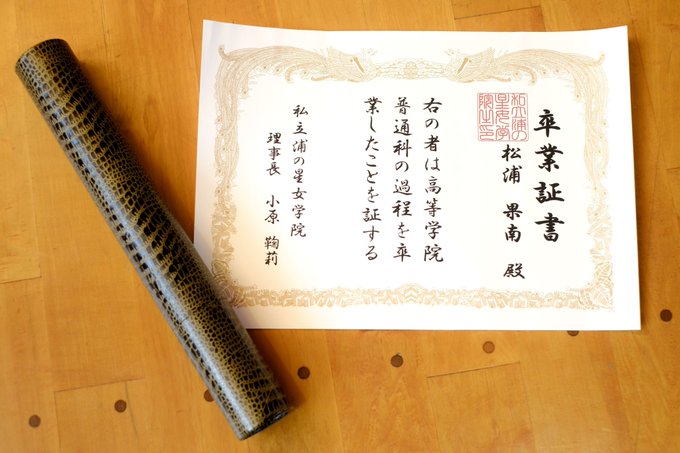 卒業証書
私立浦の
星女学
院之印
松浦 果南 殿
右の者は高等学院
普通科の過程を卒
業したことを証する
私立浦の星女学院
理事長 小原 鞠莉